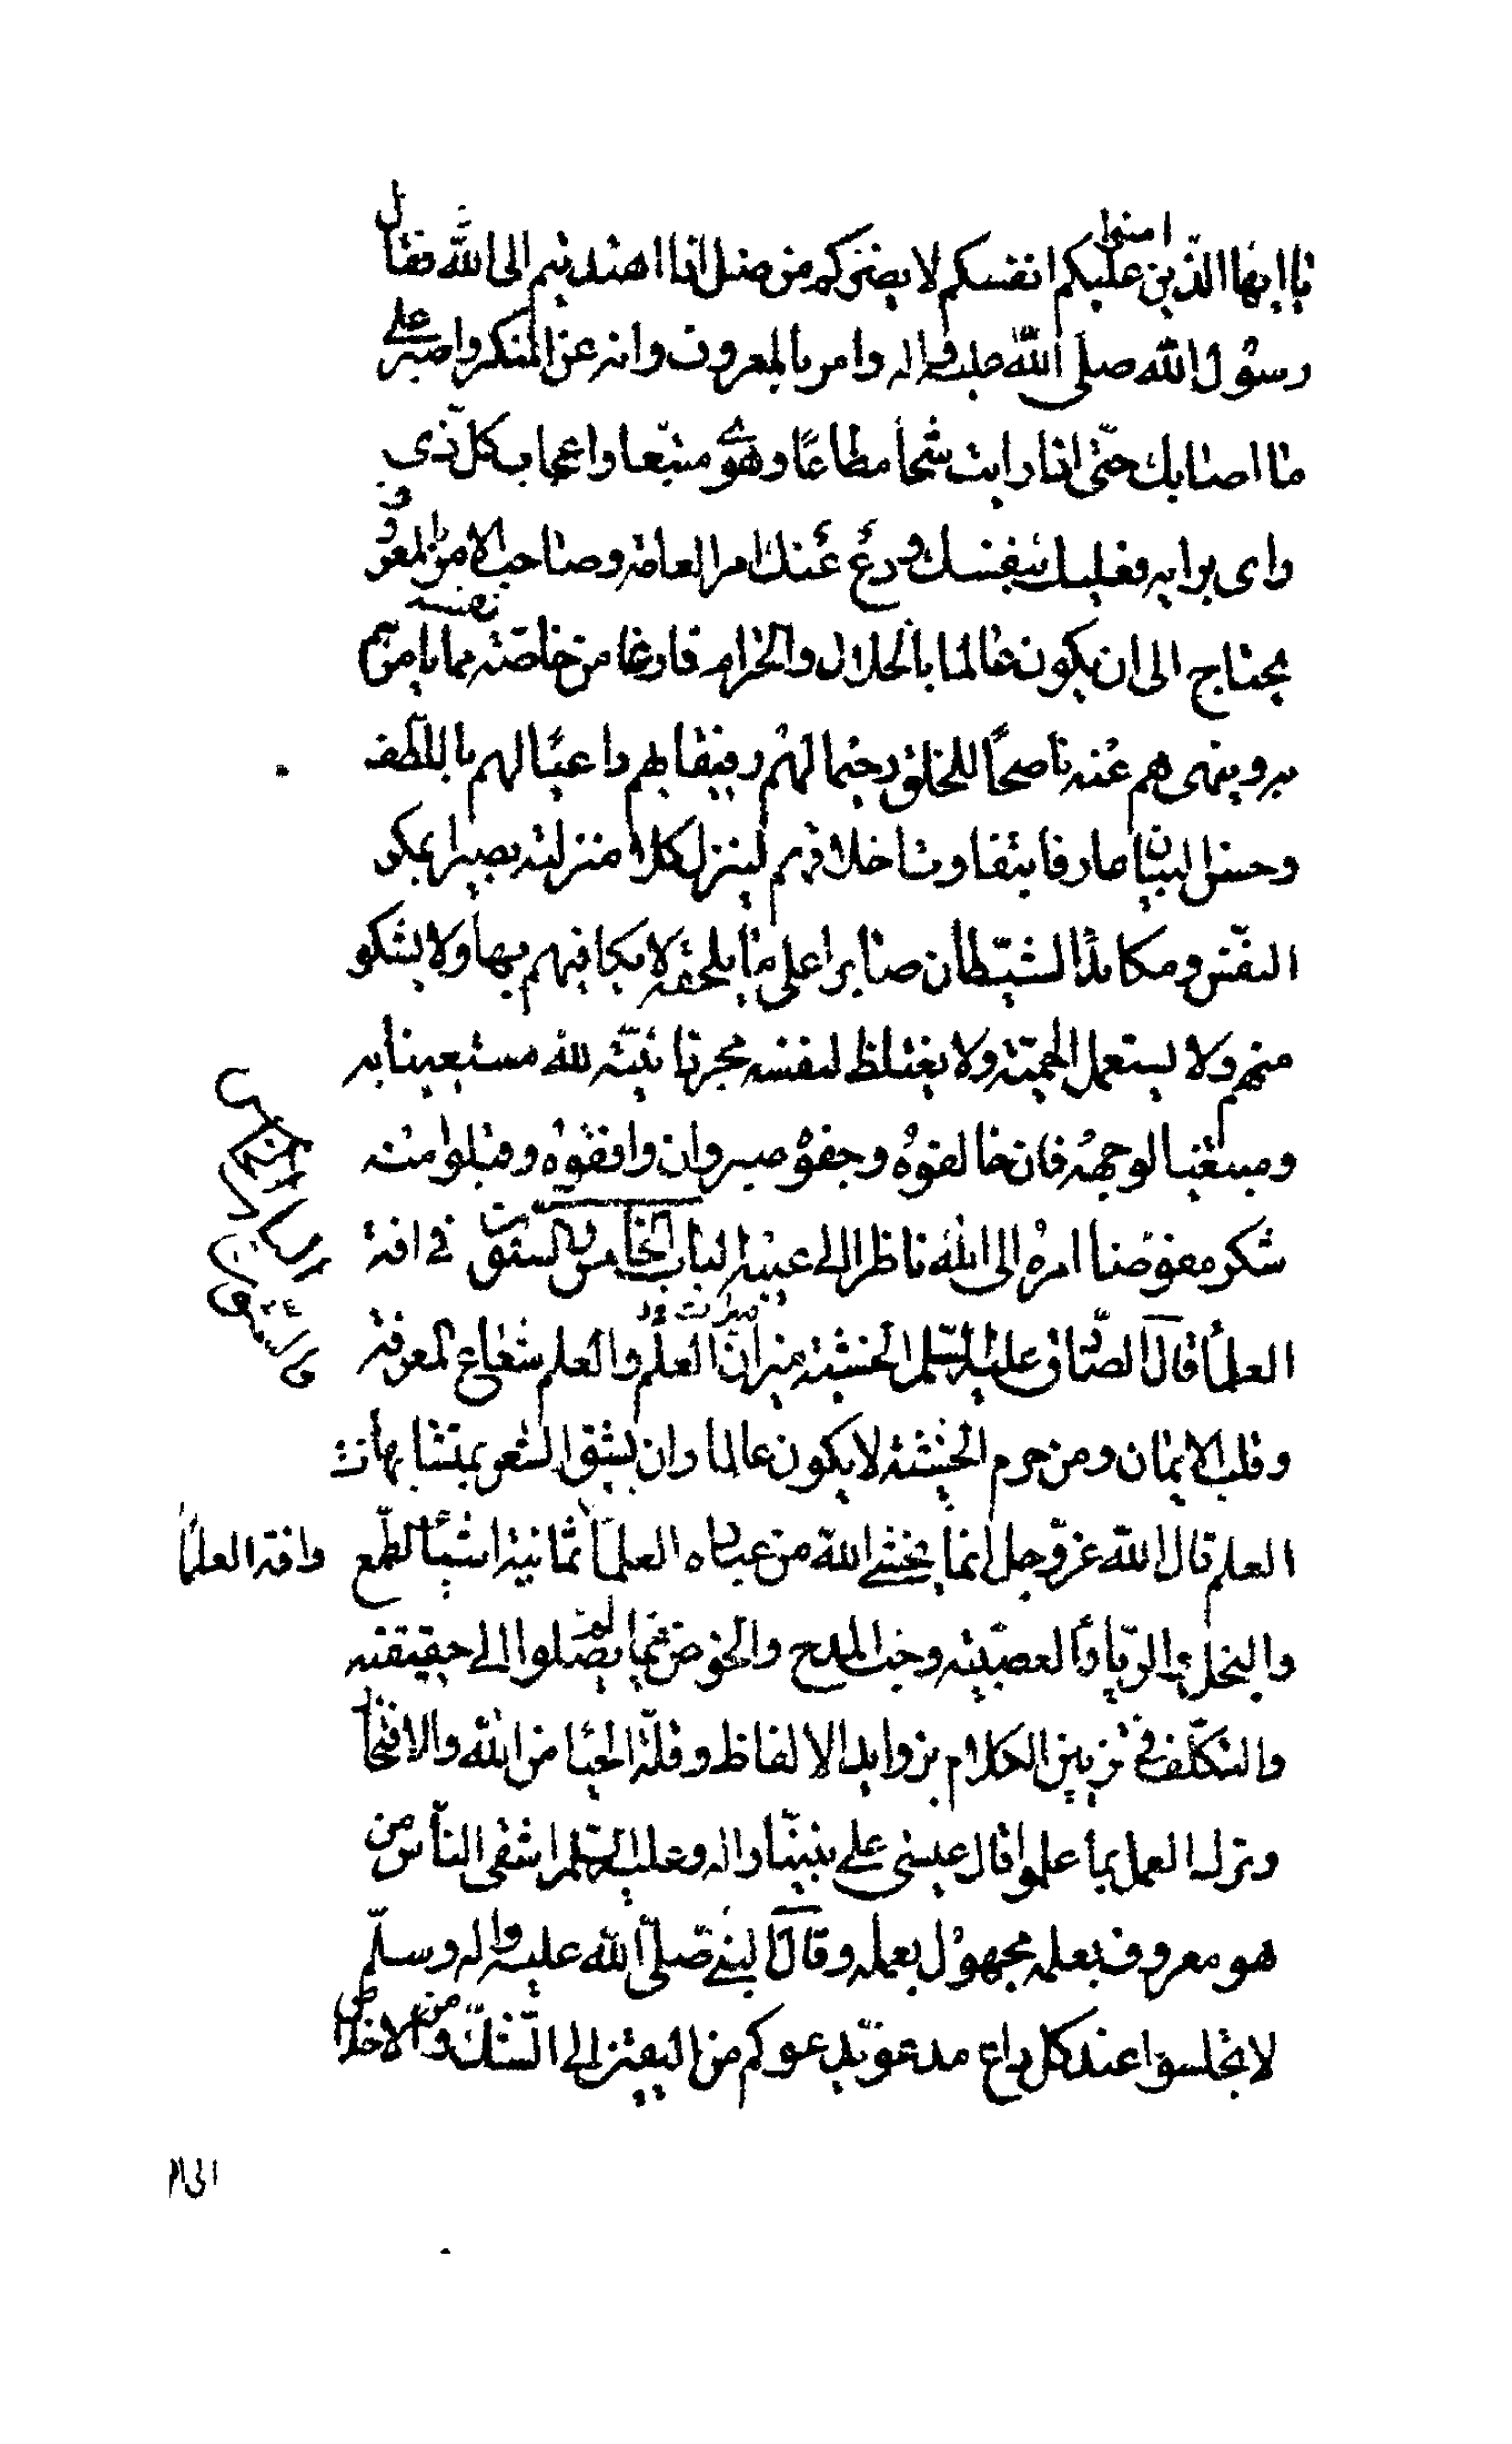 يا ايها الذين امنوا عليكم انفسكم لا يضركم من ضل اذا اهتديتم الى الله فقال
رسول الله صلى الله عليه واله وامر بالمعروف وانه عن المنكر واصبر على
ما اصابك حتى اذا رايت شحا مطاعا وهوى متبعا واعجاب كل ذي
راى برايه فعليك بنفسك ودع عنك امر العامة وصاحب الامر بالمعروف
يحتاج الى ان يكون عالما بالحلال والحرام فارغا من خاصة نفسه مما يامرهم
به وينهىهم عنه ناصحا للخلق رحيما لهم رفيقا بهم داعيا لهم باللطف
وحسن البيان عارفا بتفاوت اخلاقهم لينزل كلا منزلته بصيرا بمكر
النفس ومكايد الشيطان صابرا على ما يلحقه لا يكافيهم بها ولا يشكو
منهم ولا يستعمل الحمية ولا يغتلظ لنفسه مجردا نيته لله مستعينا به
ومبتغيا لوجهه فان خالفوه وجفوه صبر وان وافقوه وقبلوا منه
شكر مفوضا امره الى الله ناظرا الى عيبه الباب الخامس والستون في افة
العلما قال الصادق عليه السلم الخشية ميراث العلم والعلم شعاع المعرفة
وقلب الايمان ومن حرم الخشية لا يكون عالما وان يشق الشعر بمتشابهات
العلم قال الله عز وجل انما يخشى الله من عباده العلما وافة العلما ثمانية اشيا الطمع
والبخل والريا والعصبية وحب المدح والخوض فيما لم يصلوا الى حقيقته
والتكلف في تزيين الكلام بزوايد الالفاظ وقلة الحيا من الله والافتخار
وترك العمل بما علموا قال عيسى على نبينا واله وعليه السلم اشقى الناس من
هو معروف بعلمه مجهول بعمله وقال النبي صلى الله عليه واله وسلم
لا تجلسوا عند كل داع مدعو يدعوكم من اليقين الى الشك ومن الاخلاص
الباب الخامس
والستون